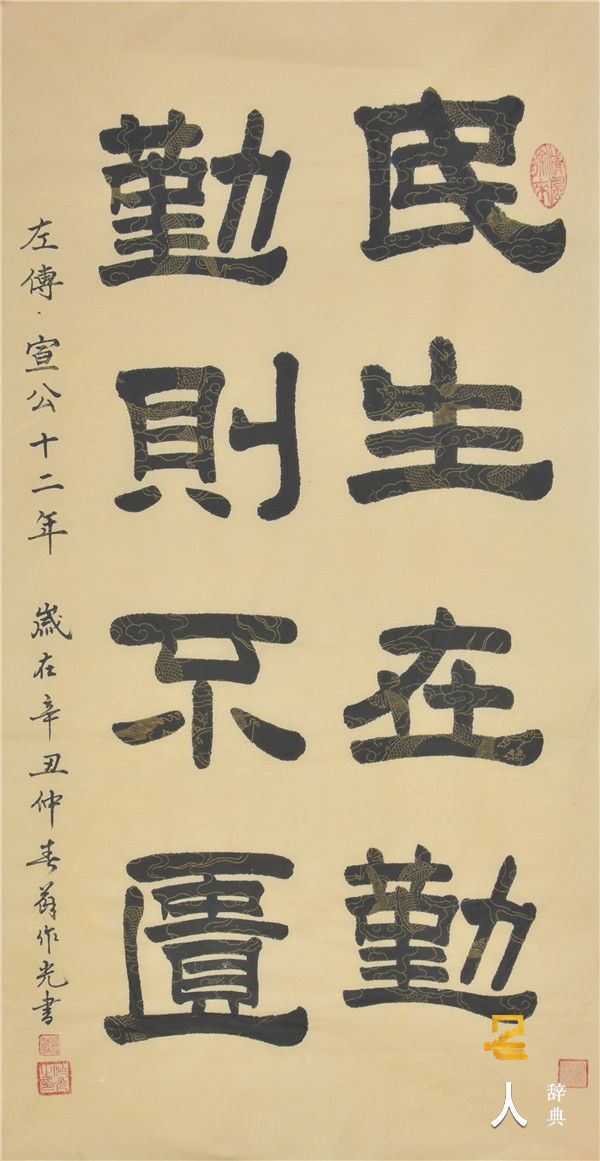 民生在勤
勤則不匱
左傳·宣公十二年 歲在辛丑仲春薛作光書
名人
辞典